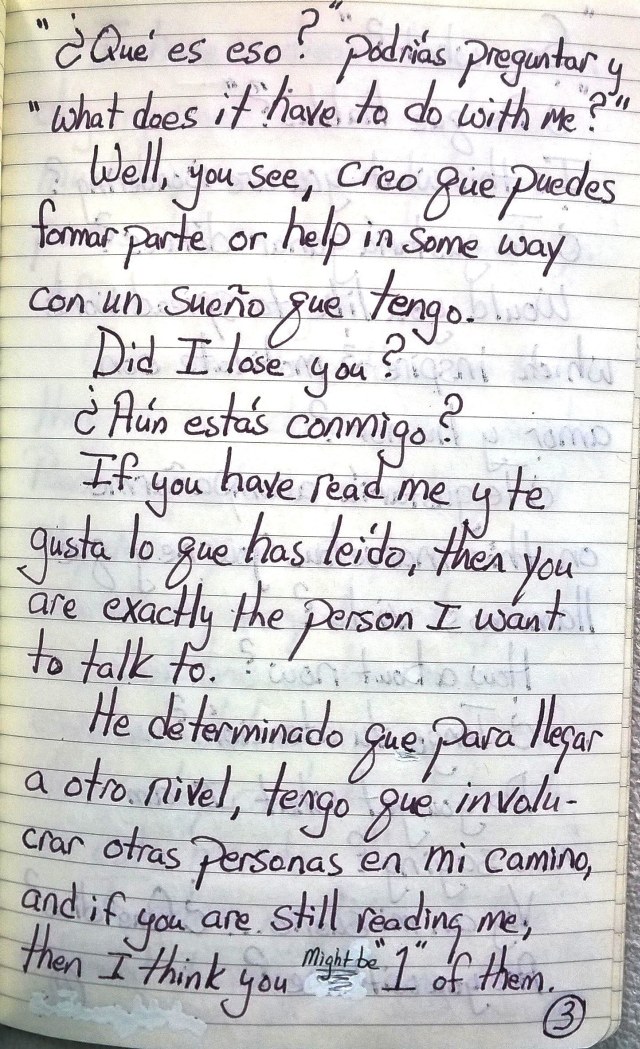 "¿Qué es eso?" podrías preguntar y
"what does it have to do with me?"
Well, you see, creo que puedes
formar parte or help in some way
con un sueño que tengo.
Did I lose you?
¿Aún estás conmigo?
If you have read me y te
gusta lo que has leído, then you
are exactly the person I want
to talk to.
He determinado que para llegar
a otro nivel, tengo que involu-
crar otras personas en mi camino,
and if you are still reading me,
then I think you Might be "1" of them.
3